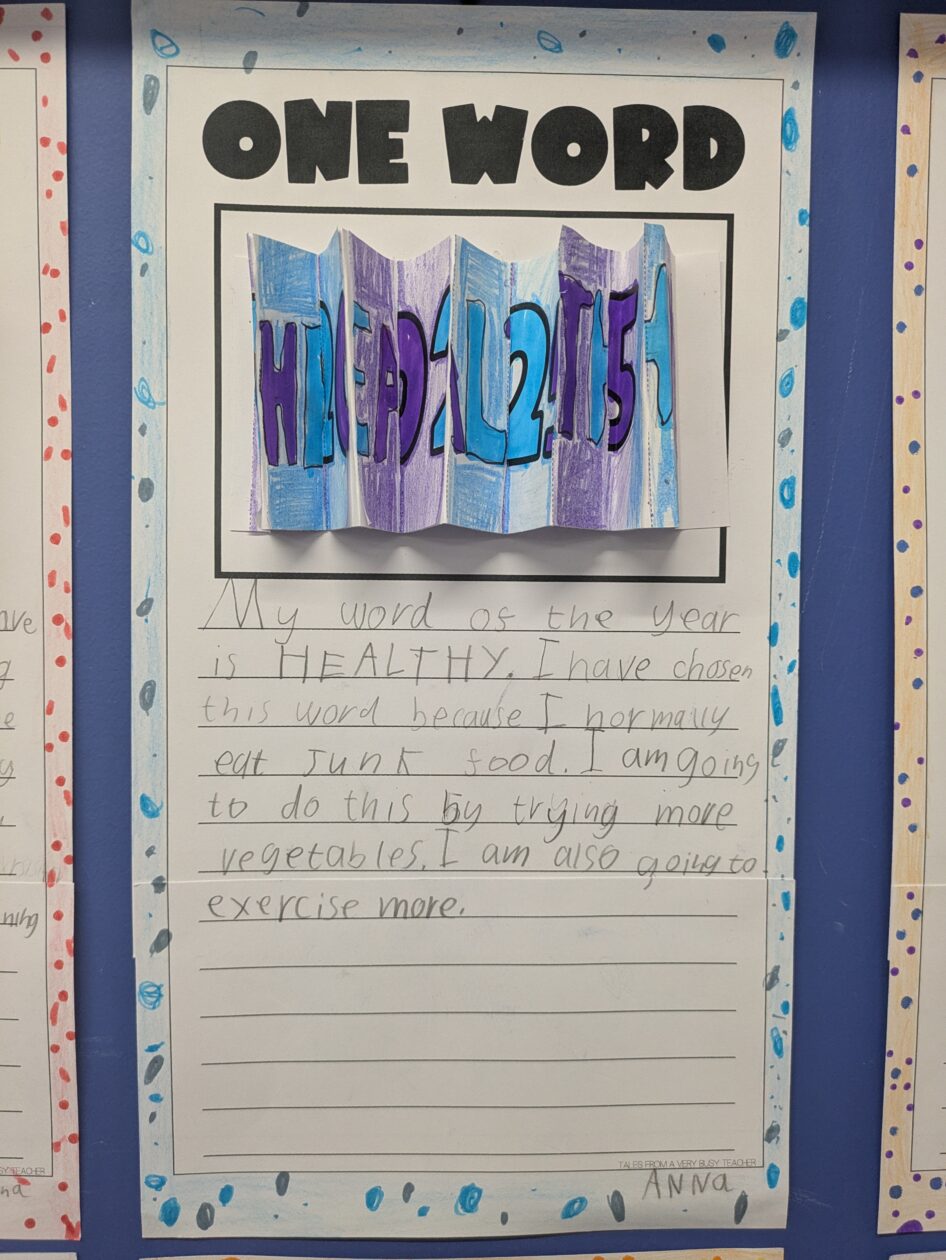 ONE WORD
My word of the year
is HEALTHY. I have chosen
this word because I normally
eat Junk food. I am going
to do this by trying more
vegetables. I am also going to
exercise more.
TALES FROM A VERY BUSY TEACHER
ANNa